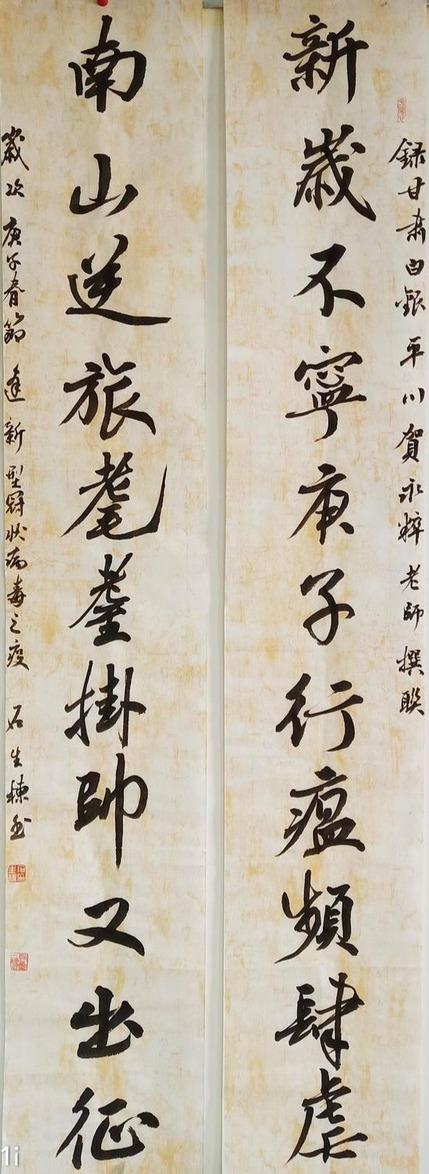 錄甘肅白銀平川賀永粹老師撰聯
新歲不寧庚子行瘟頻肆虐
南山逆旅耄耋掛帥又出征
歲次庚子春節逢新型冠狀病毒之疫 石生棟書